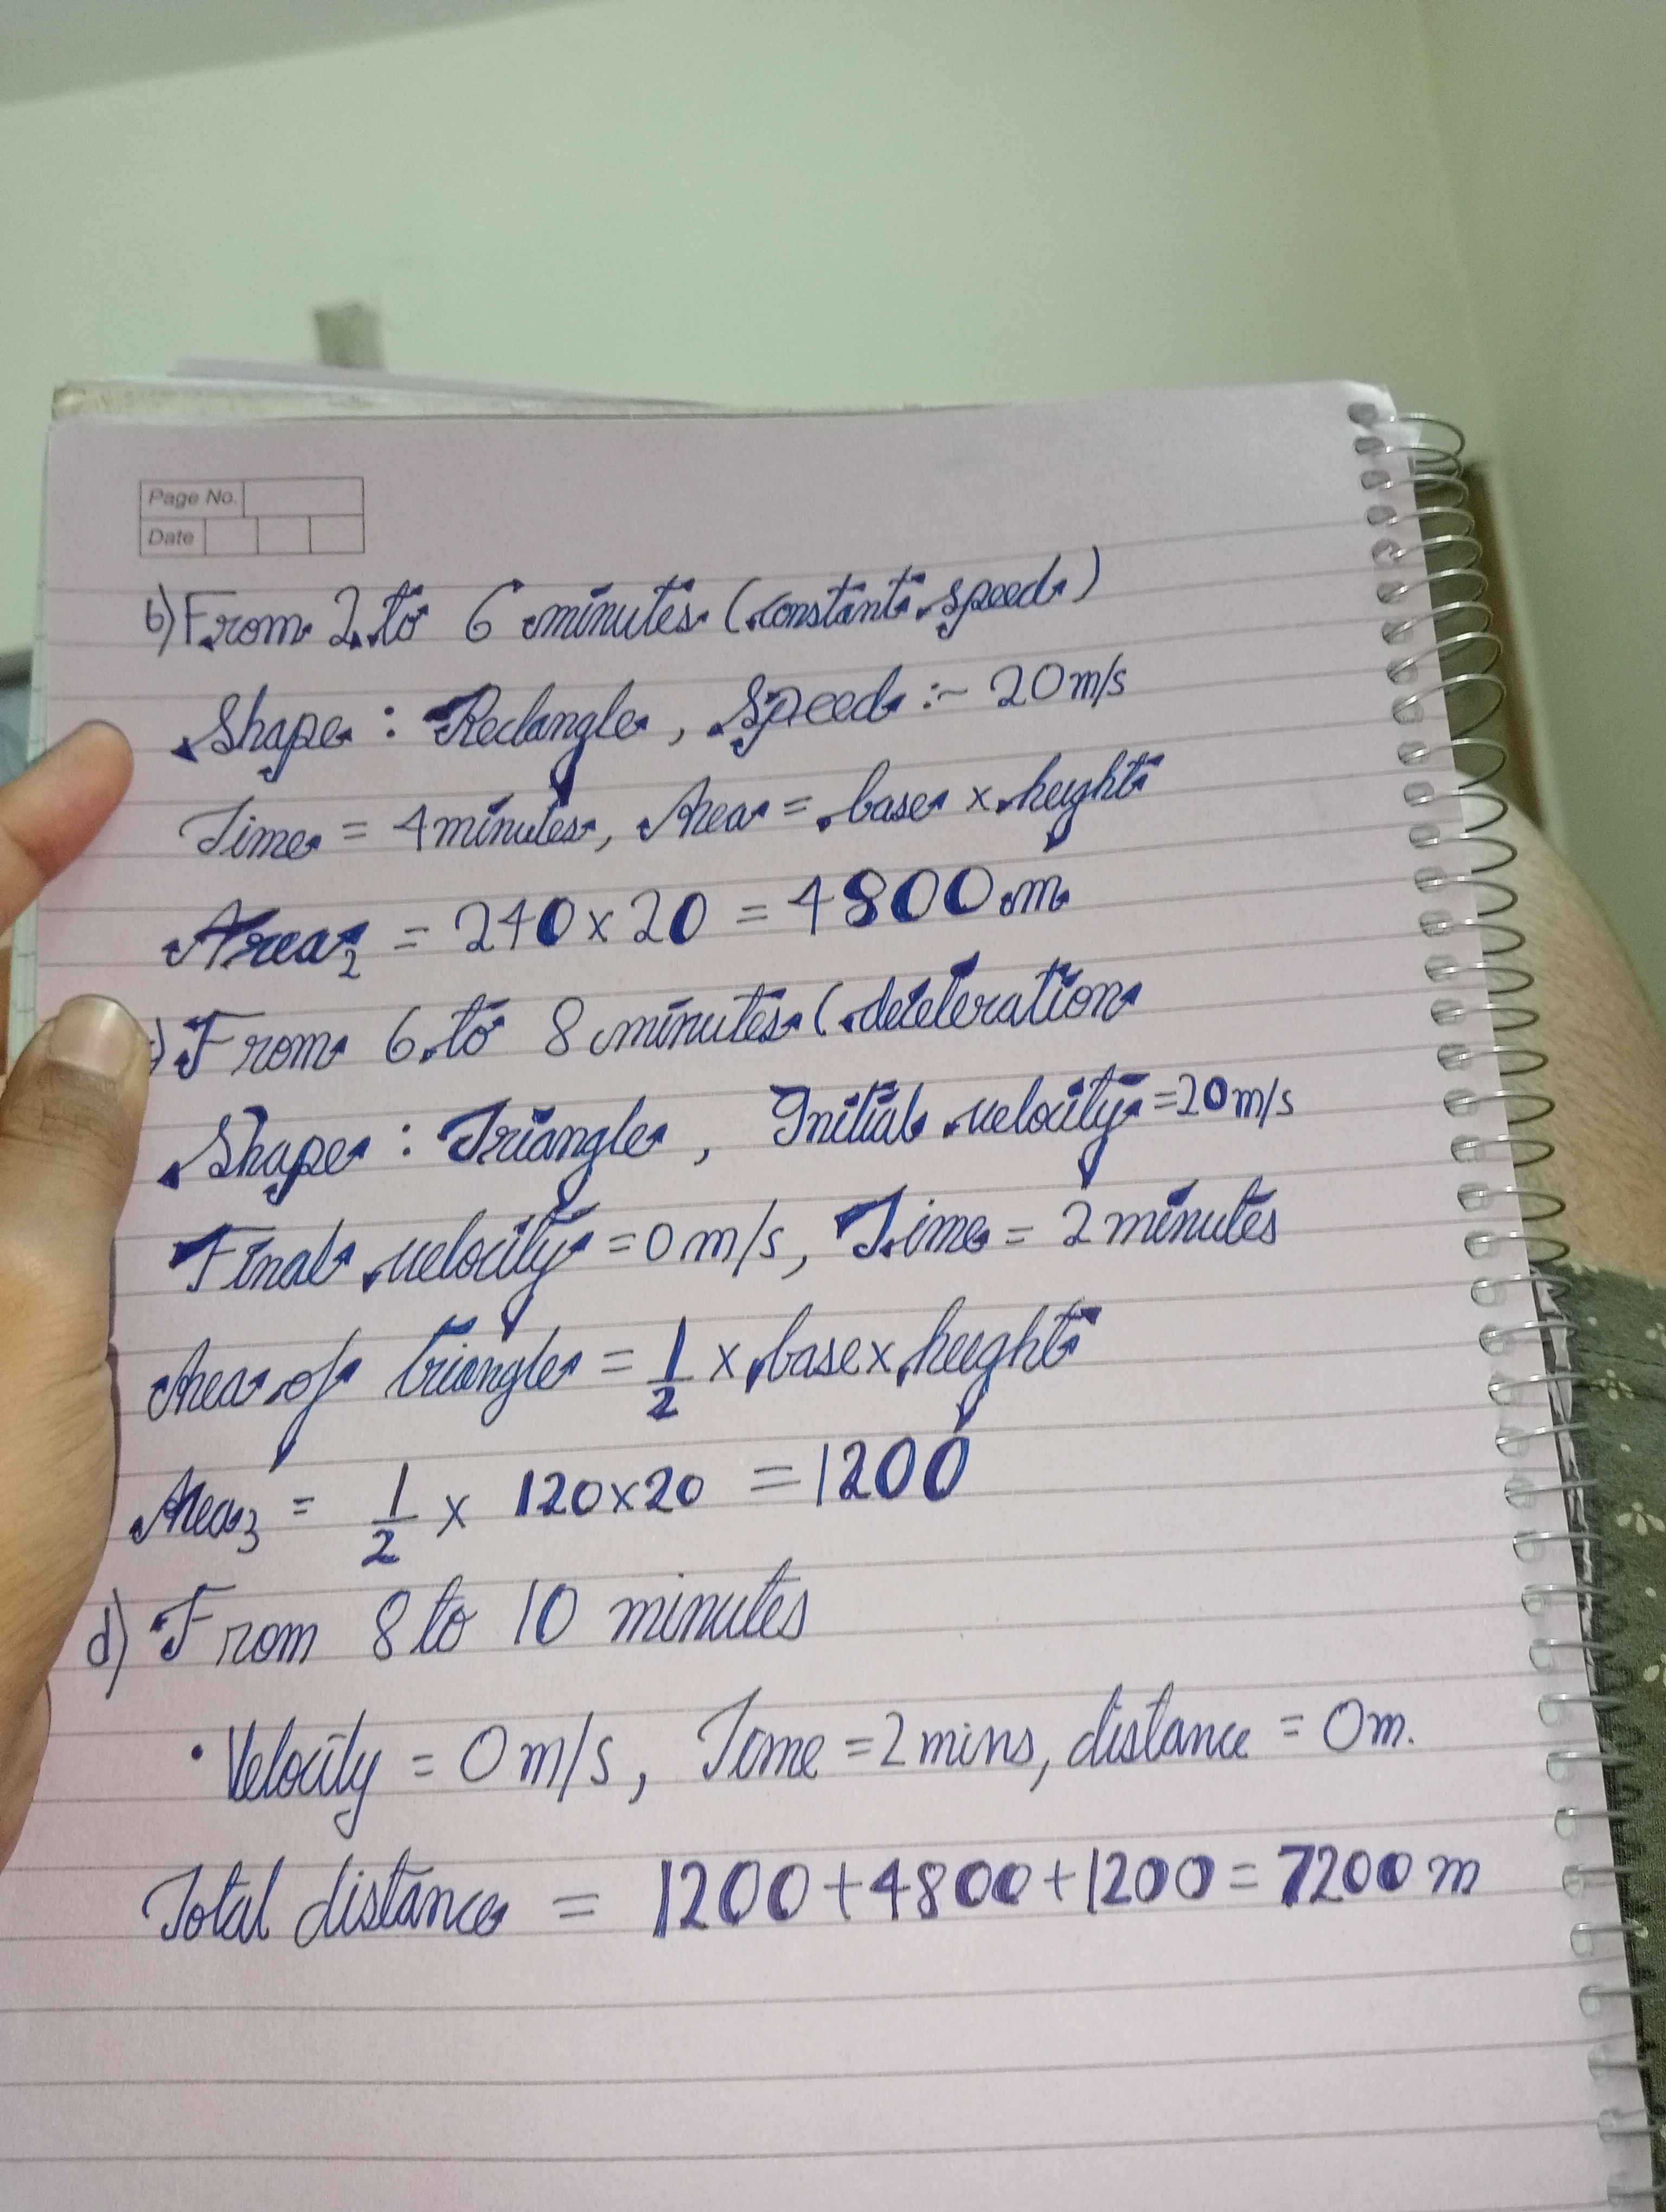 Page No.
Date
b) From 2 to 6 minutes (constant speed)
Shape : Rectangle, Speed :- 20 m/s
Time = 4 minutes, Area = base x height
Area2 = 240 x 20 = 4800 m
c) From 6 to 8 minutes (deceleration
Shape : Triangle, Initial velocity = 20 m/s
Final velocity = 0 m/s, Time = 2 minutes
Area of triangle = 1/2 x base x height
Area3 = 1/2 x 120 x 20 = 1200
d) From 8 to 10 minutes
• Velocity = 0 m/s, Time = 2 mins, distance = 0m.
Total distance = 1200 + 4800 + 1200 = 7200 m